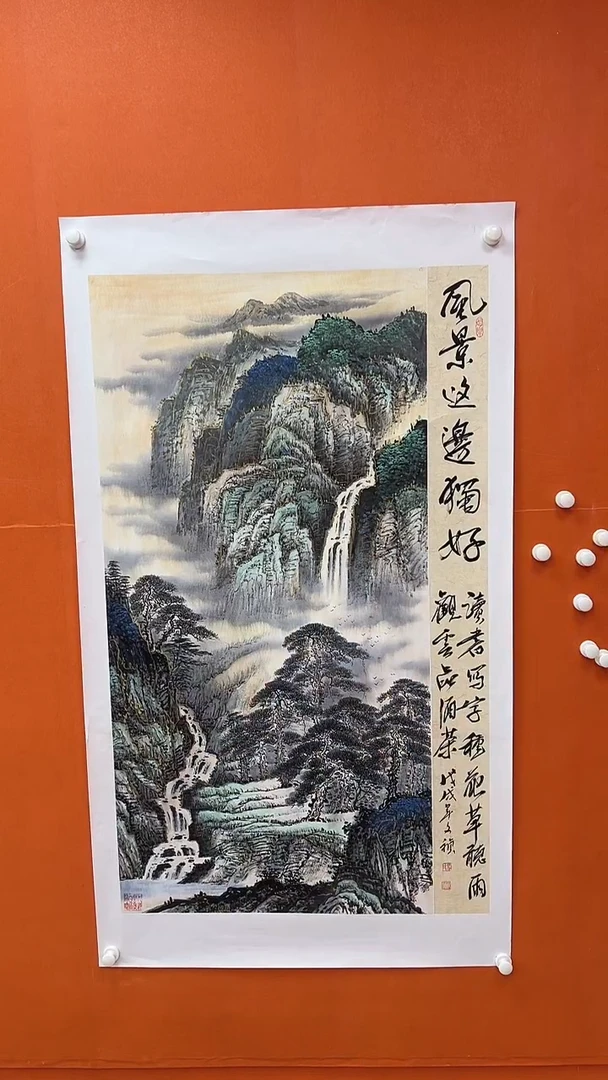 風景这邊獨好
讀書写字種花草聽雨
觀雲品酒茶
戊戌年文禎